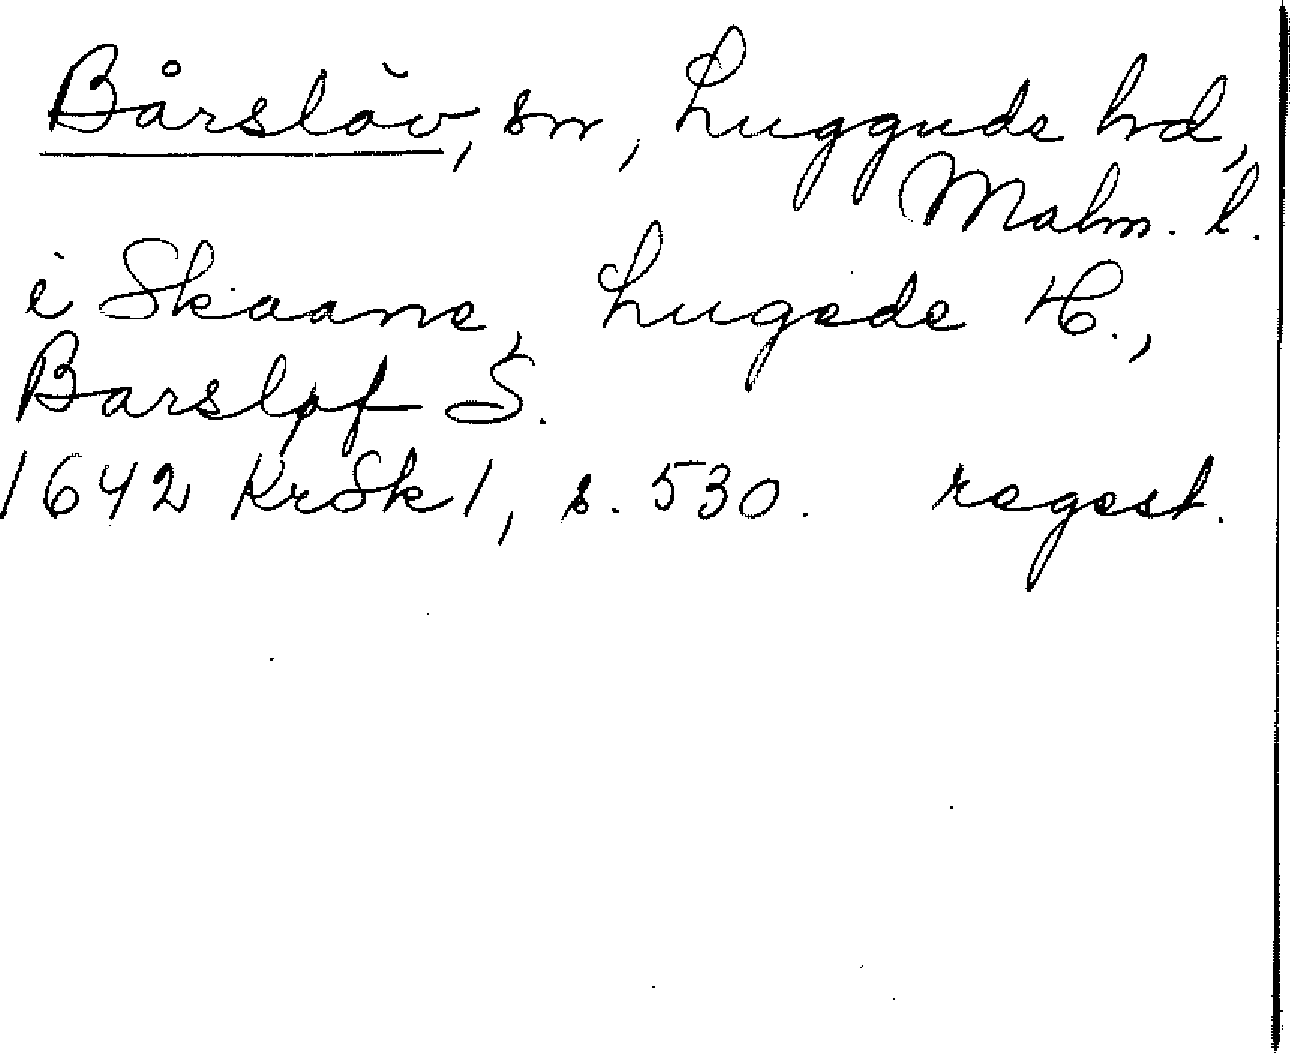 Bårslöv, sn, Luggude hd,
Malm. l.
i Skaane, Lugede H.,
Barsløf S.
1642 KrSk 1, s. 530. regest.